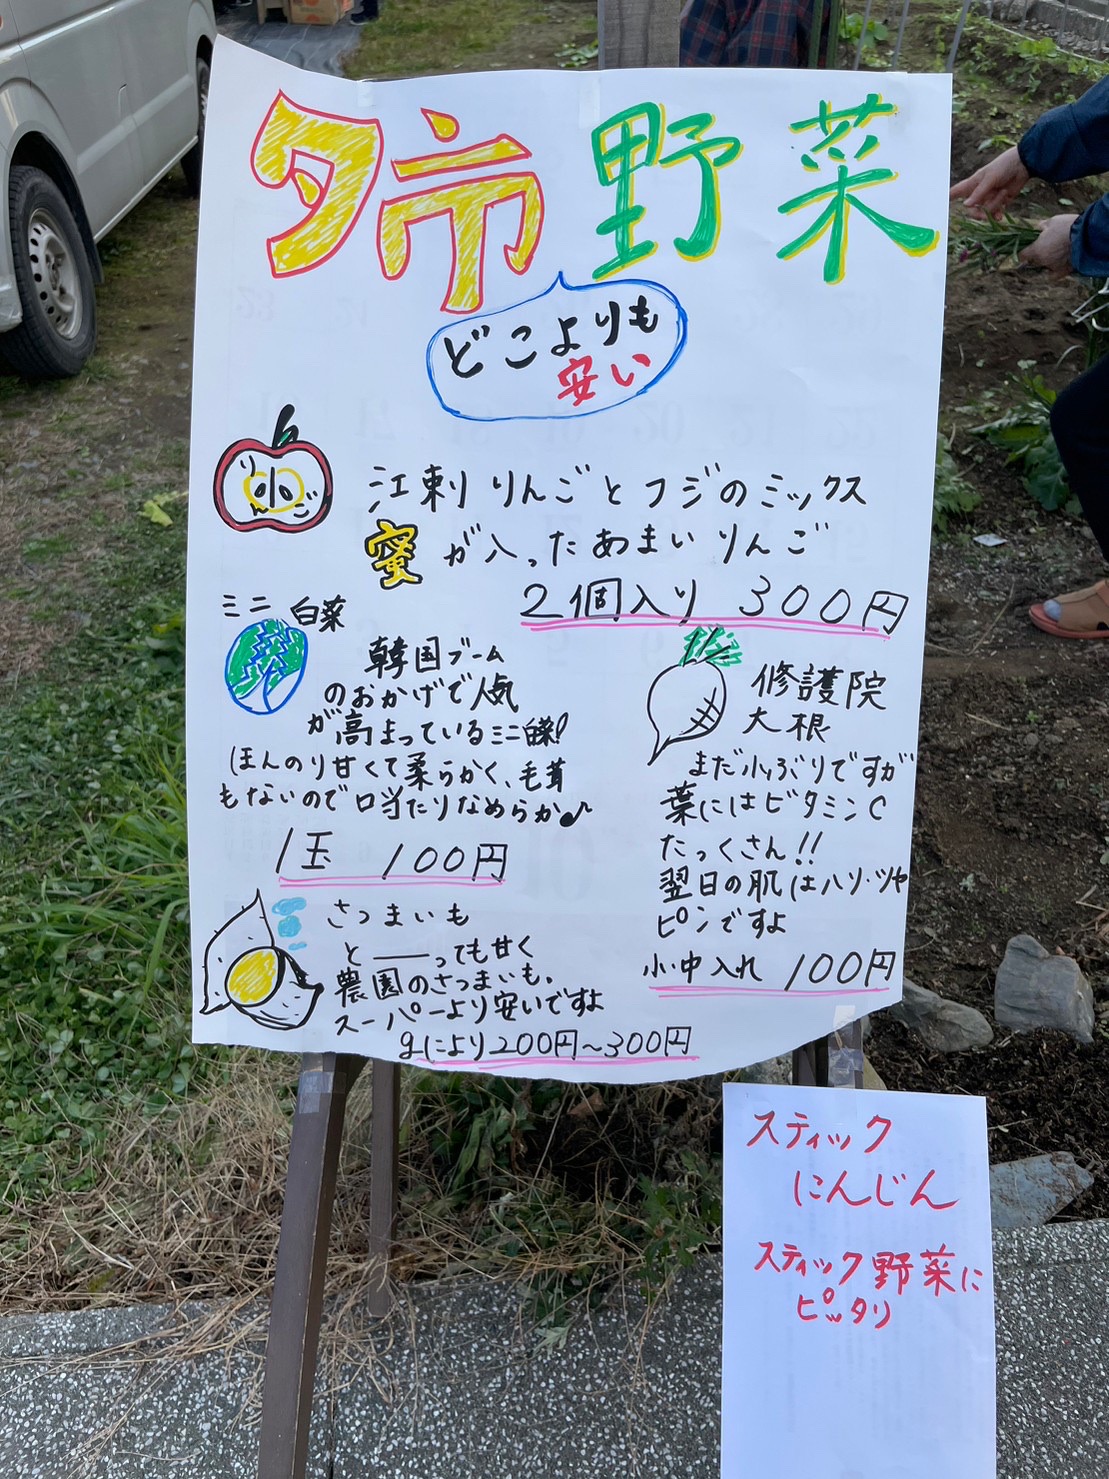 夕市 野菜
どこよりも
安い
りんご
江刺りんごとフジのミックス
蜜が入ったあまいりんご
2個入り 300円
ミニ白菜
韓国ブーム
のおかげで人気
が高まっているミニ白菜!
ほんのり甘くて柔らかく、毛茸
もないので口当たりなめらか♪
1玉 100円
修護院
大根
まだ小ぶりですが
葉にはビタミンC
たっくさん!!
翌日の肌はハリ・ツヤ
ピンですよ
小・中入れ 100円
さつまいも
と——っても甘く
農園のさつまいも。
スーパーより安いですよ
gにより200円〜300円
スティック
にんじん
スティック野菜に
ピッタリ